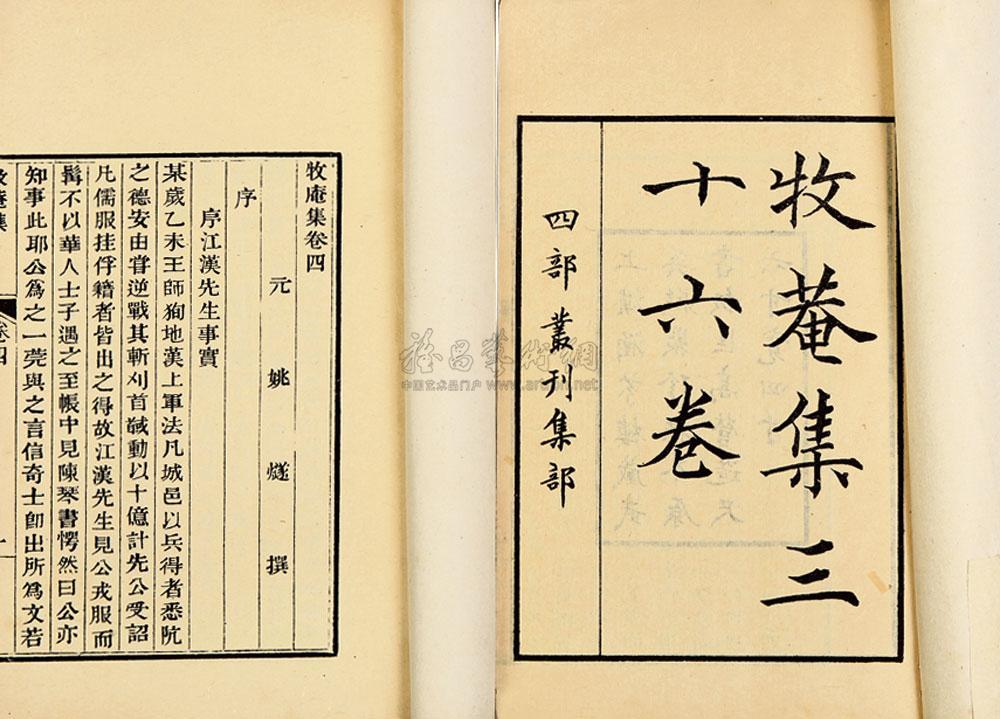 牧菴集三
十六卷
四部叢刊集部
牧庵集卷四
元 姚 燧 撰
序
序江漢先生事實
某歲乙未王師狥地漢上軍法凡城邑以兵得者悉阬
之德安由甞逆戰其斬刈首馘動以十億計先公受詔
凡儒服挂俘籍者皆出之得故江漢先生見公戎服而
髯不以華人士子遇之至帳中見陳琴書愕然曰公亦
知事此耶公爲之一莞與之言信奇士卽出所爲文若
卷四
中国艺术品门户 www.artron.net